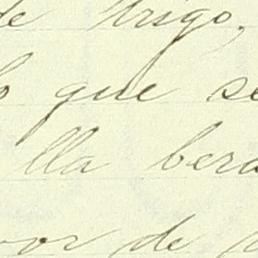 de trigo,
o que se
lla bera
vor de